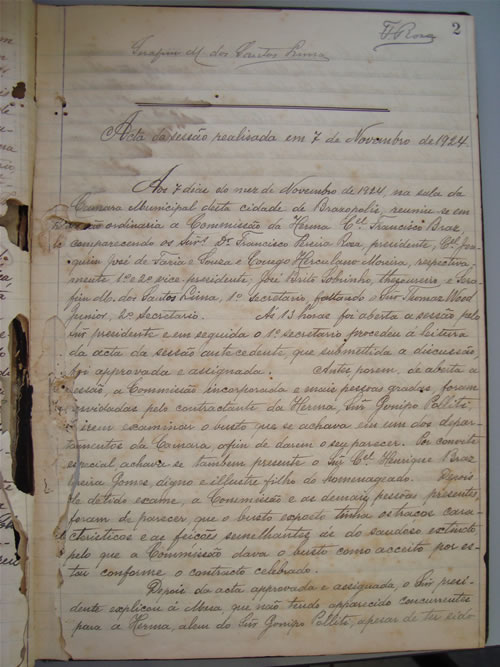 2
F Rosa
Serafim M. dos Santos Lima
Acta da sessão realisada em 7 de Novembro de 1924.
Aos 7 dias do mez de Novembro de 1924, na sala da
Camara Municipal desta cidade de Brazopolis, reuniu-se em
sessão ordinaria a Commissão da Herma Cel. Francisco Braz
comparecendo os Snrs. Dr. Francisco Pereira Rosa presidente, Cel. Joa-
quim José de Faria e Souza e Conego Herculano Moreira, respectiva
mente 1º e 2º vice-presidente, José Brito Sobrinho, thezoureiro e Sera-
fim M. dos Santos Lima, 1º Secretario, faltando o Snr. Thomaz Wood
Junior, 2º Secretario. As 13 horas foi aberta a sessão pelo
Snr presidente e em seguida o 1º secretario procedeu á leitura
da acta da sessão antecedente, que submettida a discussão,
foi approvada e assignada. Antes porem, de aberta a
sessão, a Commissão incorporada e mais pessoas gradas, foram
convidadas pelo contractante da Herma, Snr
irem examinar o busto que se achava em um dos depar-
tamentos da Camara, afim de darem o seu parecer. Por convite
especial achava-se tambem presente o Snr Cel. Henrique Braz
Pereira Gomes, digno e illustre filho do homenageado. Depois
de detido exame, a Commissão e as demais pessoas presentes
foram de parecer, que o busto exposto tinha os traços cara-
cteristicos e as feições semelhantes ás do saudoso extincto
pelo que a Commissão dava o busto como acceito por es-
tar conforme o contracto celebrado.
Depois da acta approvada e assignada, o Snr presi-
dente explicou á Meza que não tendo apparecido concurrentes
para a Herma, alem do Snr apesar de ter sido